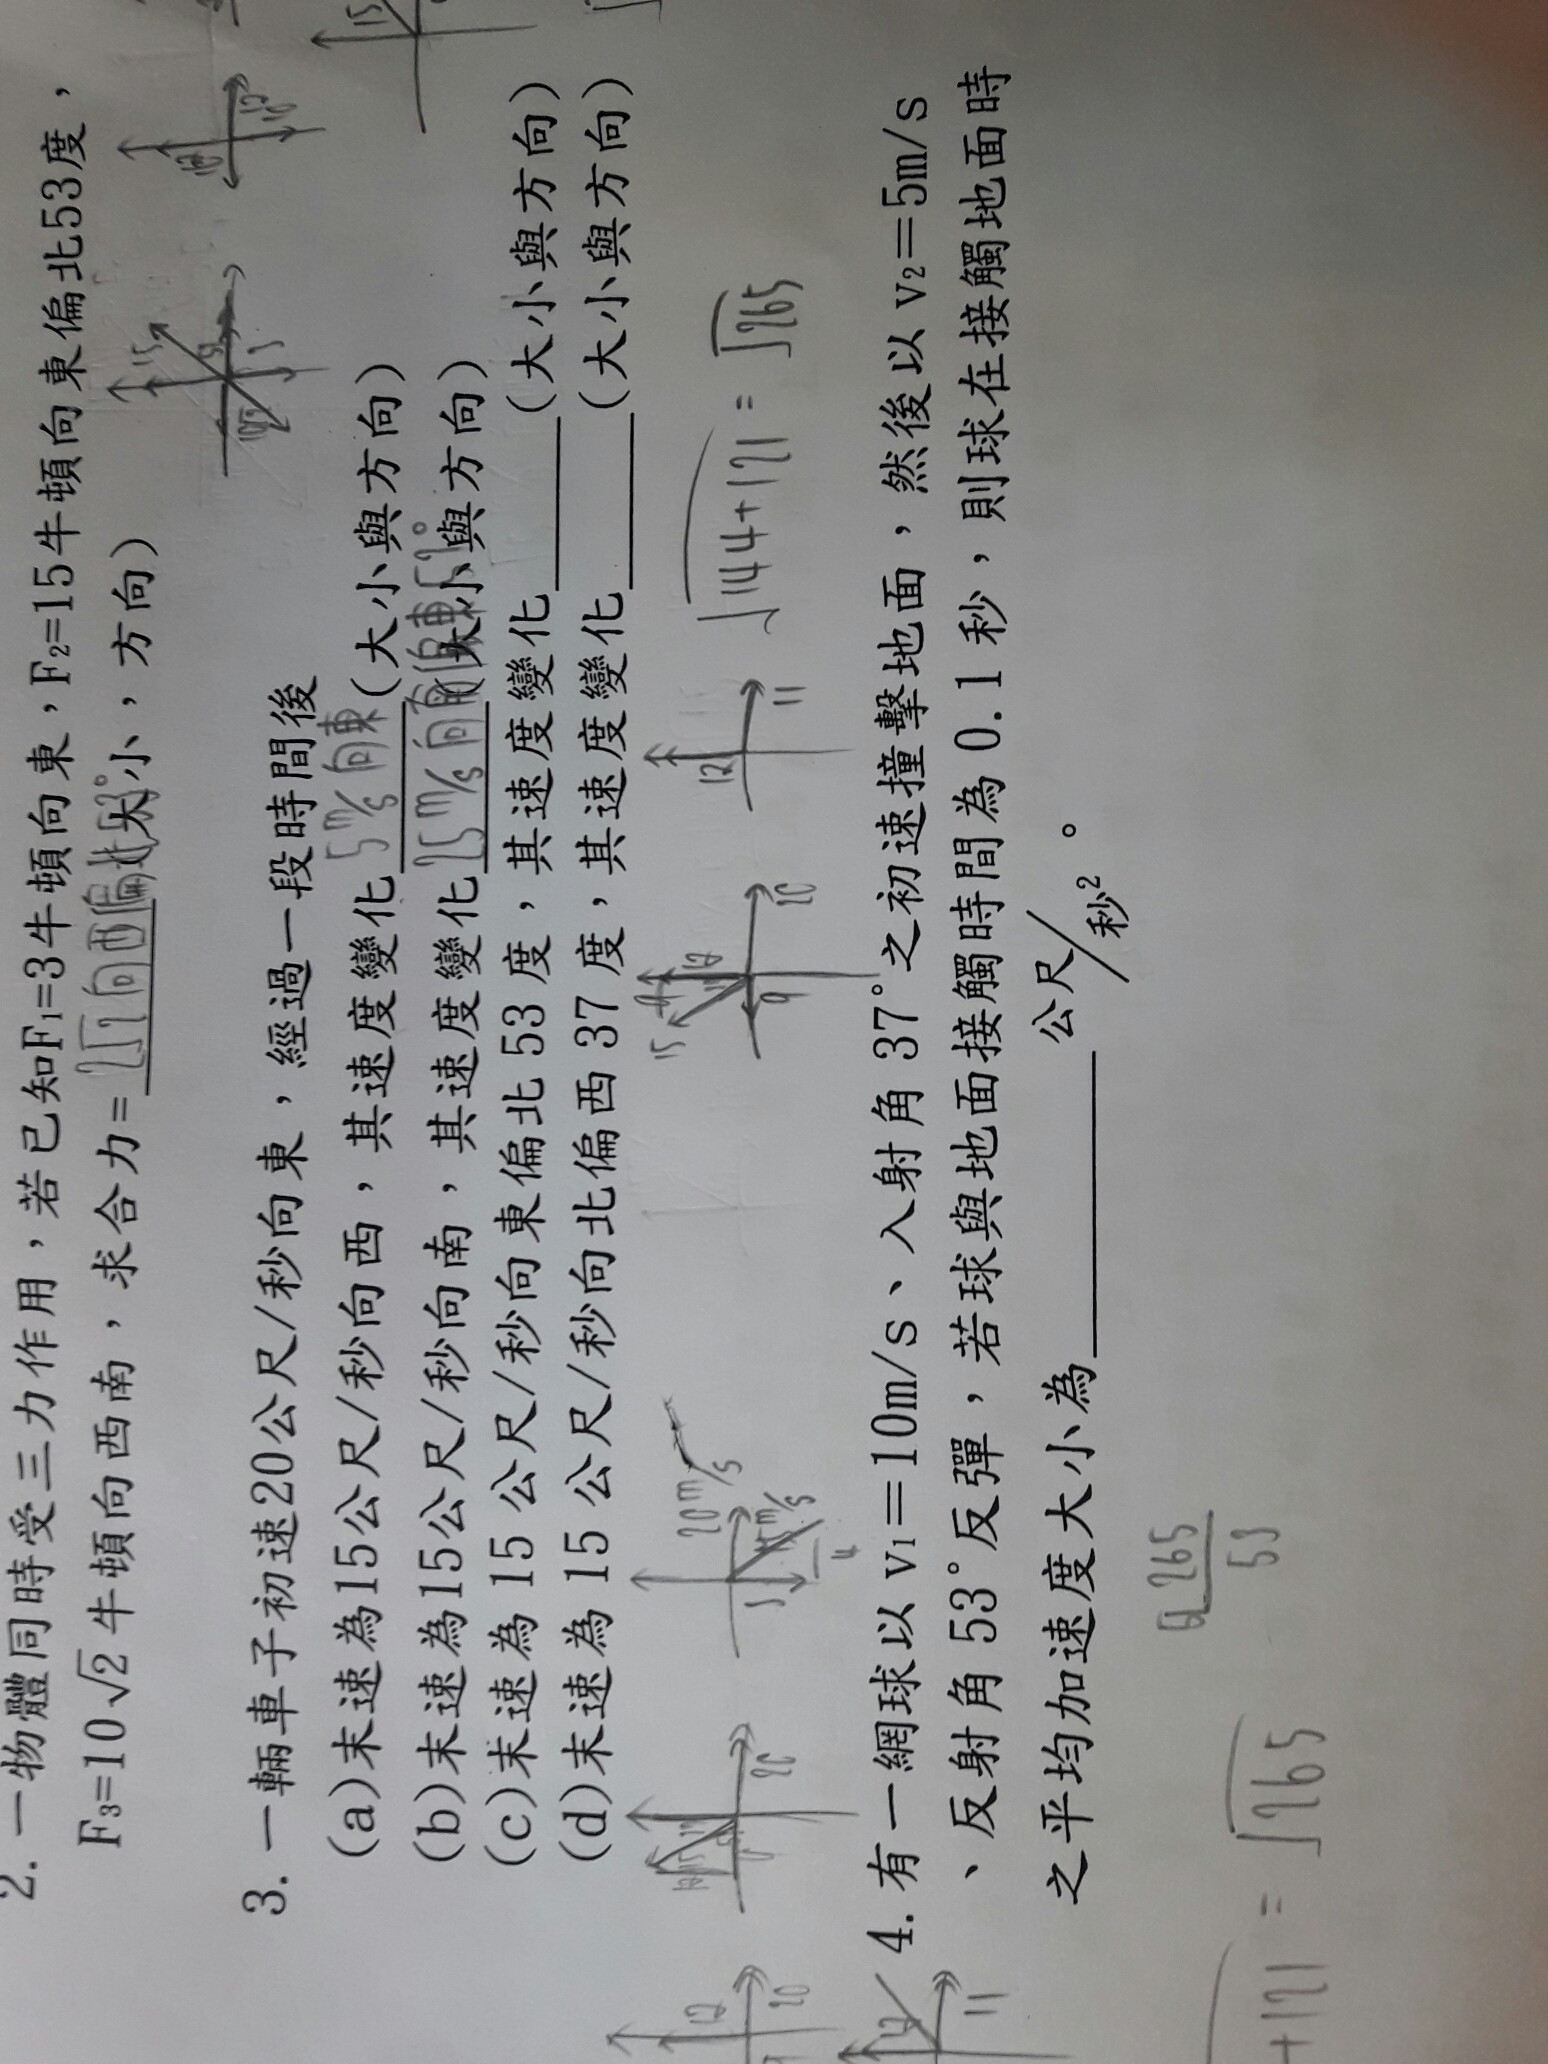 2. 一物體同時受三力作用，若已知F₁=3牛頓向東，F₂=15牛頓向東偏北53度，
F₃=10√2 牛頓向西南，求合力=(大小，方向)
3. 一輛車子初速20公尺/秒向東，經過一段時間後
(a)末速為15公尺/秒向西，其速度變化 5 m/s 向東 (大小與方向)
(b)末速為15公尺/秒向南，其速度變化 25 m/s (大小與方向)
(c)末速為 15 公尺/秒向東偏北 53 度，其速度變化______(大小與方向)
(d)末速為 15 公尺/秒向北偏西 37 度，其速度變化______(大小與方向)
20 m/s
15 m/s
20
15
12
9
20
12
11
√144+121 = √265
12
20
4. 有一網球以 v₁＝10m/s、入射角 37°之初速撞擊地面，然後以 v₂＝5m/s
、反射角 53°反彈，若球與地面接觸時間為 0.1 秒，則球在接觸地面時
之平均加速度大小為__________公尺/秒²。
11
265
53
+121 = √265